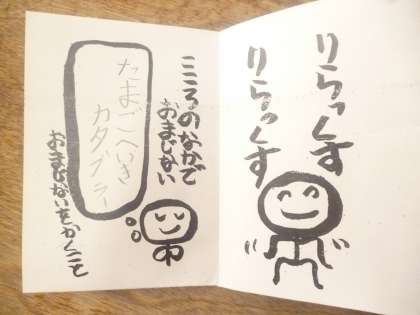 りらっくす
りらっくす
こころのなかで
おまじない
たまごへいき
カタブラー
おまじないをかくこと